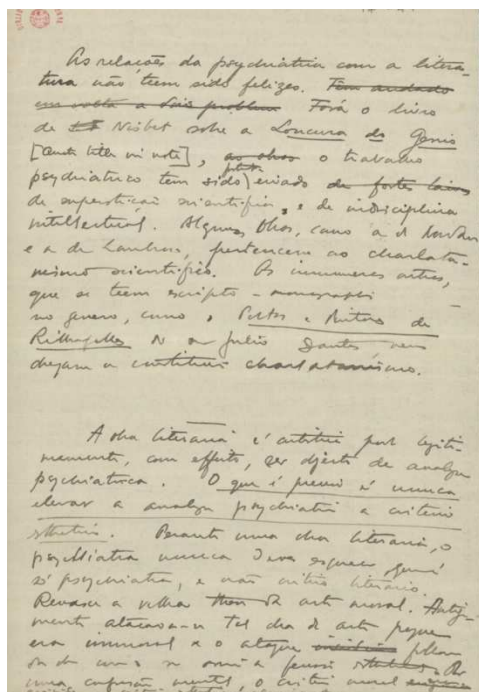 As relações da psychiatria com a litera-
tura não teem sido felizes. Têm andado
em volta a
Fóra o livro
de Nisbet sobre a Loucura do Genio
[Quote title in note], as obras o trabalho
psychiatrico tem sido eivado de fortes laivos
de superstição scientifica, e de indisciplina
intellectual. Algumas obras, como a de Nordau
e a de Lombroso, pertencem ao charlata-
nismo scientifico. Os innumeros artigos,
que se teem escripto - monographs
no genero, como os Poetas e
de
Rilhafolles do sr Julio Dantas nem
chegam a constituir charlatanismo.
A obra literaria e artistica pode legiti-
mamente, com effeito, ser objecto de analyse
psychiatrica. O que é preciso é nunca
elevar a analyse psychiatrica a criterio
esthetico. Perante uma obra literaria, o
psychiatra nunca deve esquecer que é
só psychiatra, e não critico literario.
a velha da arte moral. Antiga-
mente atacava-se tal obra de arte porque
era immoral e o ataque
de
uma confusão mental, o criterio moral